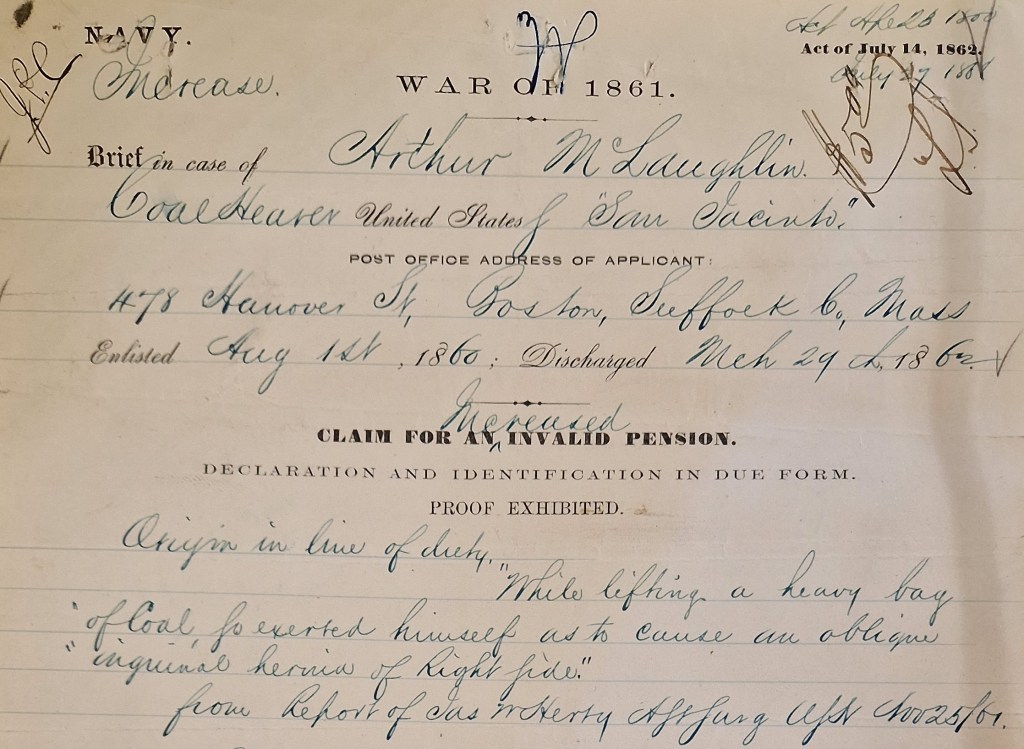 NAVY.
Act of July 14, 1862.
Increase.
July 27 1868
WAR OF 1861.
Brief in case of Arthur McLaughlin.
Coal Heaver United States S "San Jacinto."
POST OFFICE ADDRESS OF APPLICANT:
478 Hanover St, Boston, Suffock Co, Mass
Enlisted Aug 1st, 1860; Discharged Mch 29th, 1862.
Increased
CLAIM FOR AN ^ INVALID PENSION.
DECLARATION AND IDENTIFICATION IN DUE FORM.
PROOF EXHIBITED.
Origin in line of duty.
"While lifting a heavy bag
"of Coal, so exerted himself as to cause an oblique
"inguinal hernia of Right side."
from Report of Jas McHersy Asst Surg USN Nov 25/61.